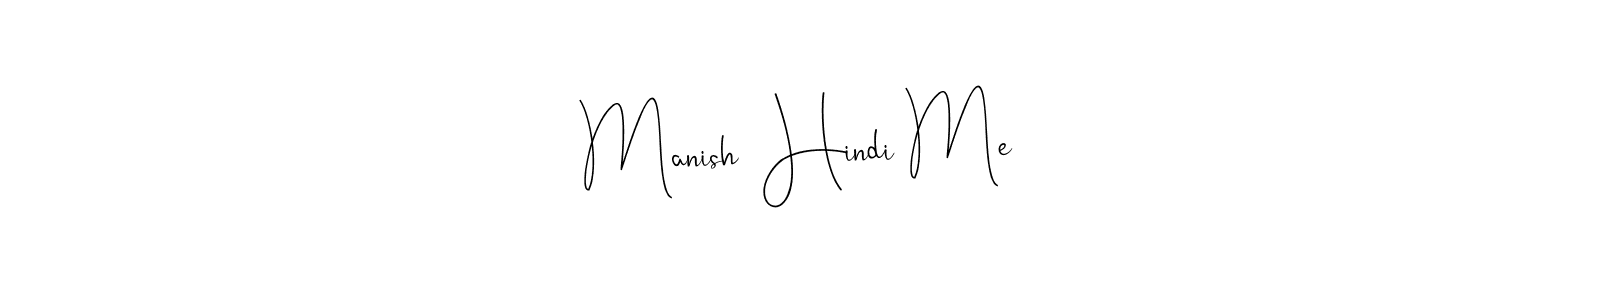 Manish Hindi Me